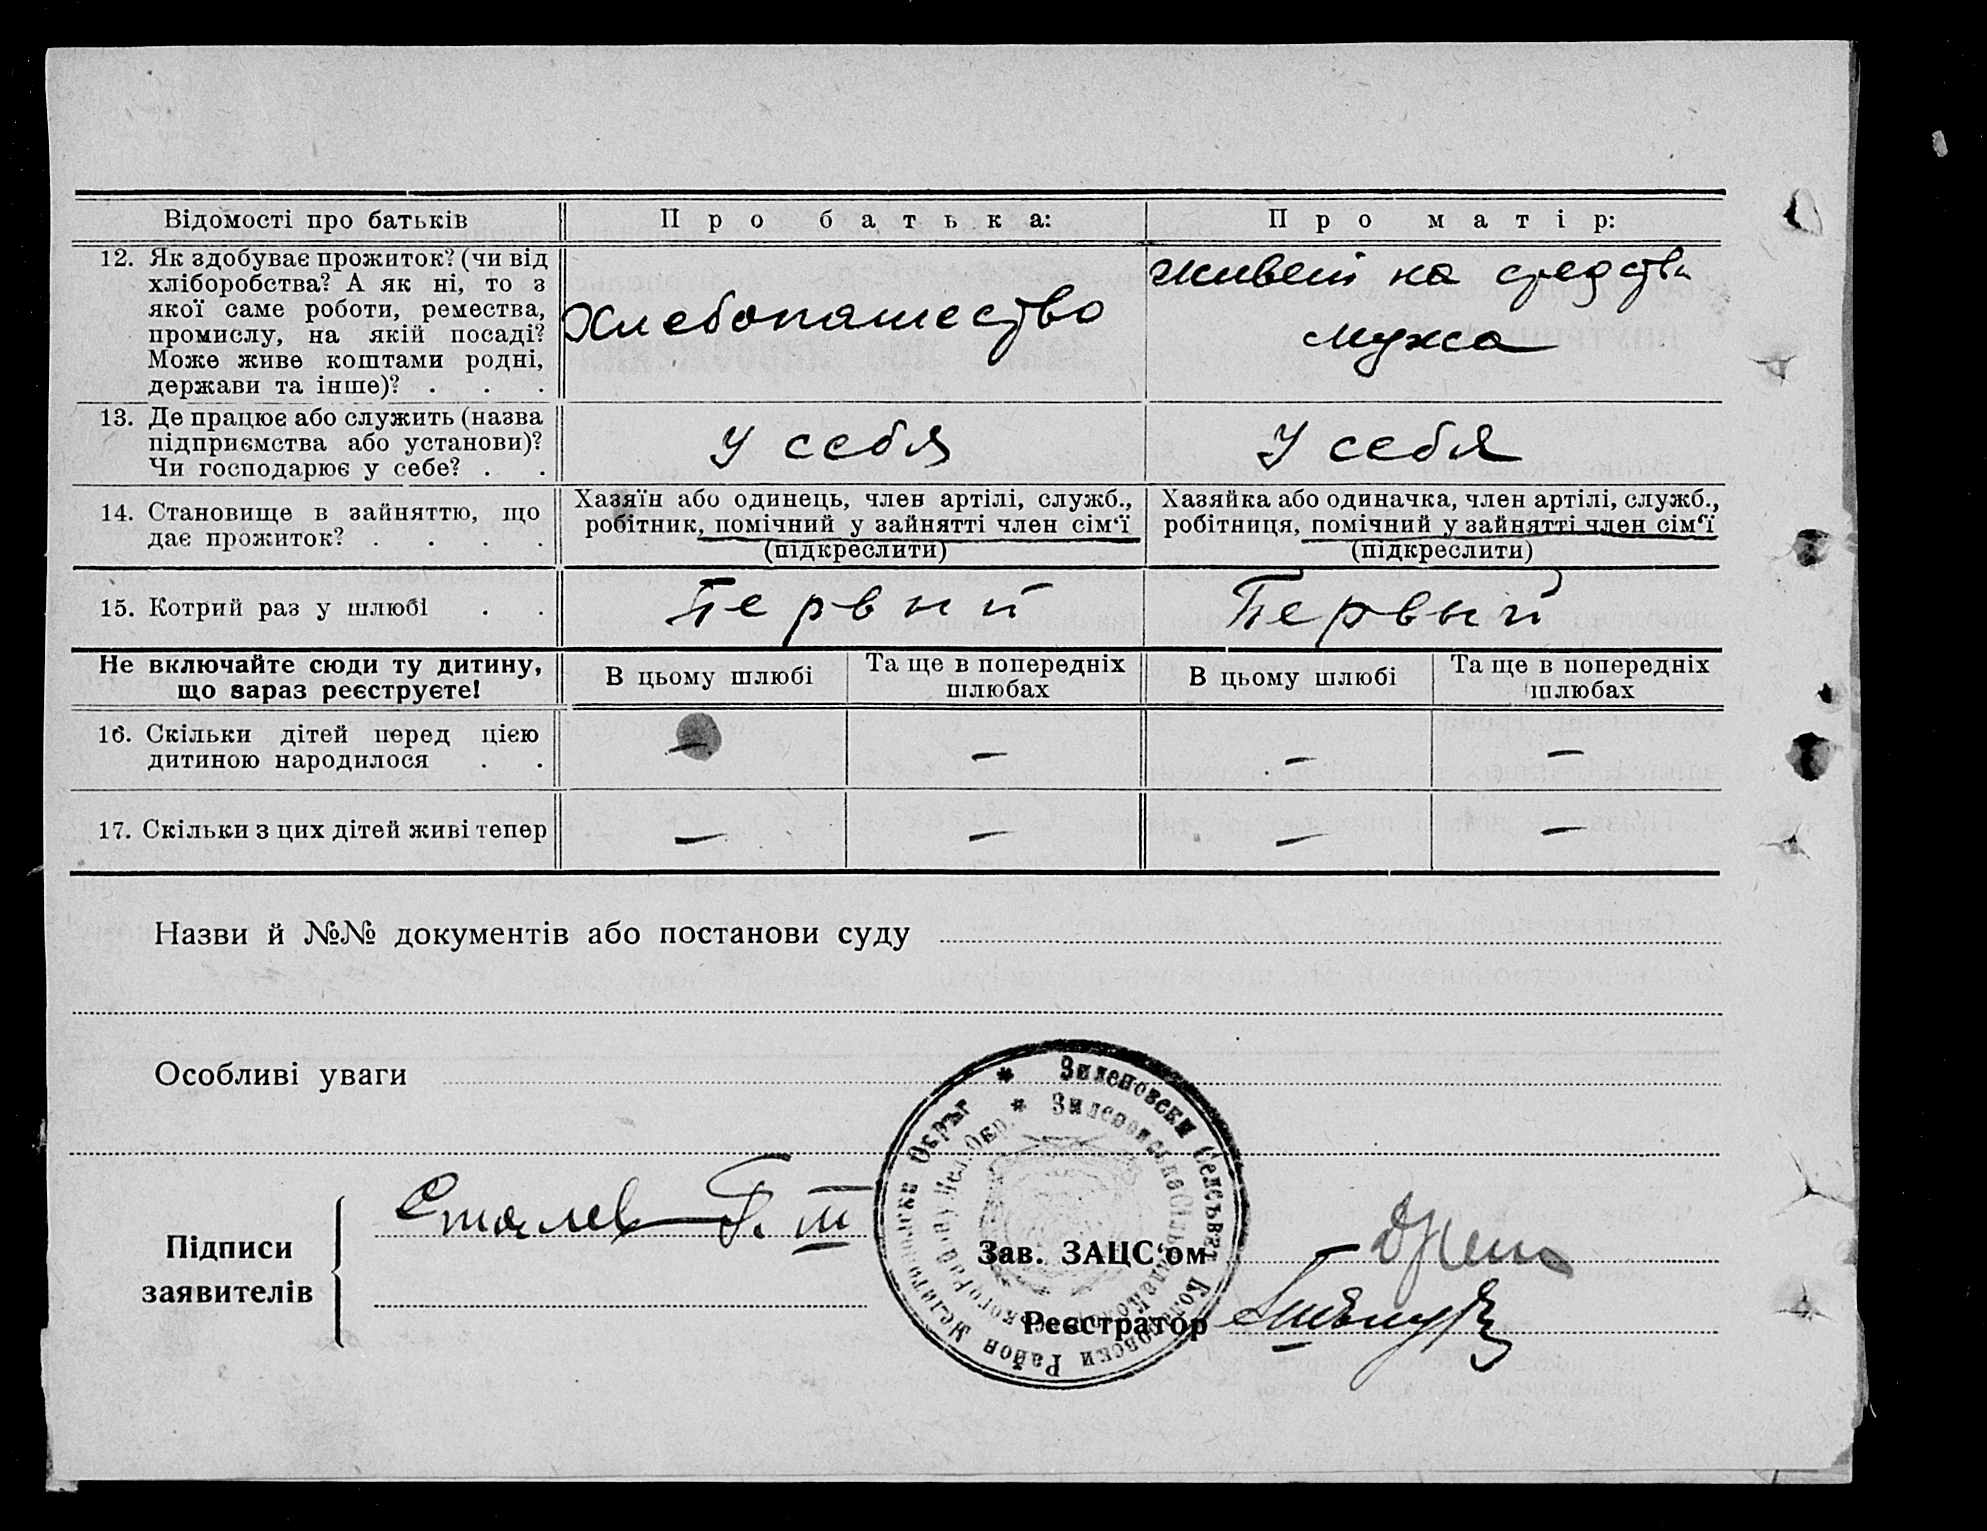 Відомості про батьків
Про батька:
Про матір:
12. Як здобуває прожиток? (чи від
хліборобства? А як ні, то з
якої саме роботи, ремества,
промислу, на якій посаді?
Може живе коштами родні,
держави та інше)? . . .
Хлебопашество
живет на средства
мужа
13. Де працює або служить (назва
підприємства або установи)?
Чи господарює у себе? . .
У себя
У себя
14. Становище в зайняттю, що
дає прожиток? . . . .
Хазяїн або одинець, член артілі, служб.,
робітник, помічний у зайнятті член сім'ї
(підкреслити)
Хазяйка або одиначка, член артілі, служб.,
робітниця, помічний у зайнятті член сім'ї
(підкреслити)
15. Котрий раз у шлюбі . .
Первый
Первый
Не включайте сюди ту дитину,
що зараз реєструєте!
В цьому шлюбі
Та ще в попередніх
шлюбах
В цьому шлюбі
Та ще в попередніх
шлюбах
16. Скільки дітей перед цією
дитиною народилося . .
— — — —
17. Скільки з цих дітей живі тепер
— — — —
Назви й №№ документів або постанови суду
Особливі уваги
* Зиленовски Селсъвет Коларовски Район Мелитополски Окръг
* Зиленовська Сільрада Коларовського Району Мел. Окр.
Підписи
заявителів
Сталев
Зав. ЗАЦС'ом
Реєстратор